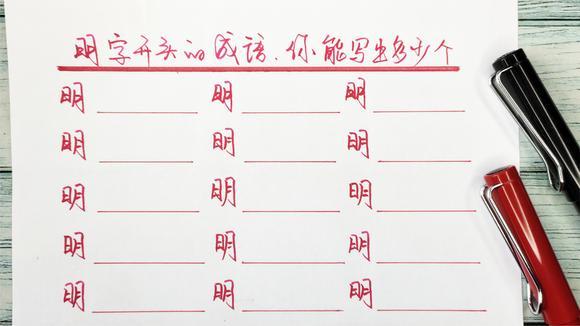 明字开头的成语、你能写出多少个
明 明 明
明 明 明
明 明 明
明 明 明
明 明 明